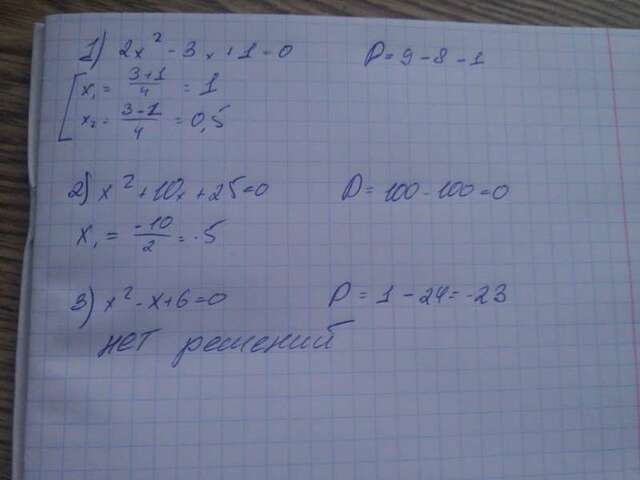 1) 2x² - 3x + 1 = 0 D = 9 - 8 - 1
x₁ = 3+1/4 = 1
x₂ = 3-1/4 = 0,5
2) x² + 10x + 25 = 0 D = 100 - 100 = 0
x₁ = -10/2 = -5
3) x² - x + 6 = 0 D = 1 - 24 = -23
нет решений